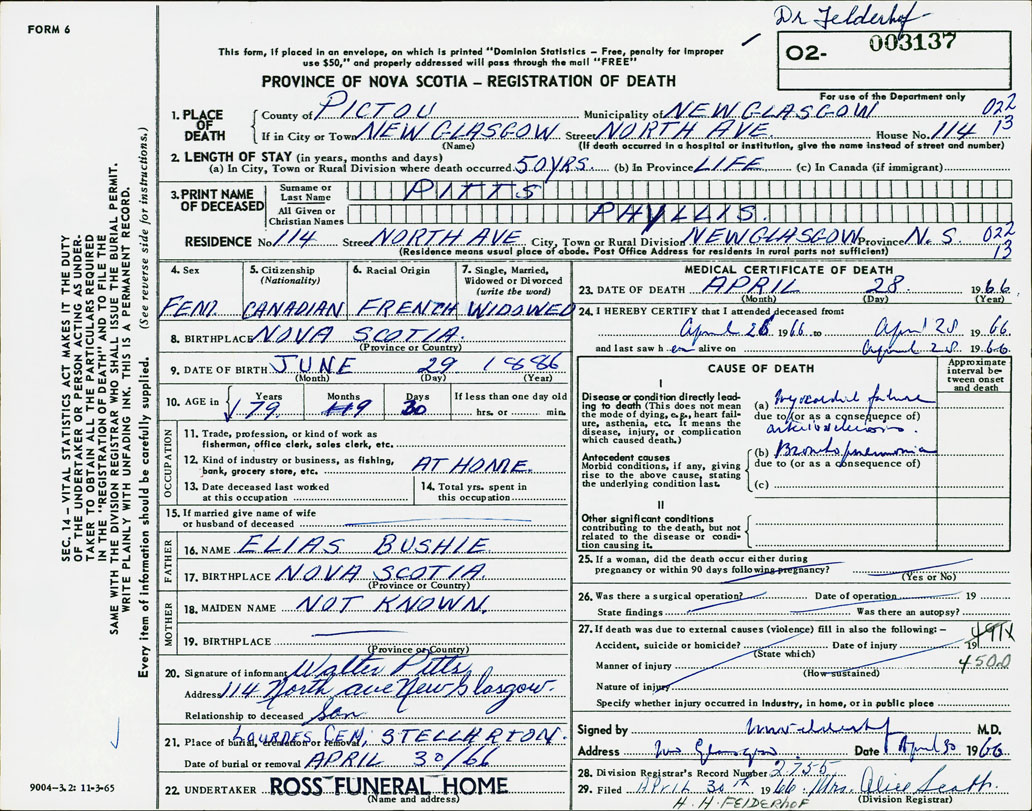 FORM 6
Dr Felderhof
This form, if placed in an envelope, on which is printed "Dominion Statistics – Free, penalty for improper
use $50," and properly addressed will pass through the mail "FREE"
O2- 003137
PROVINCE OF NOVA SCOTIA – REGISTRATION OF DEATH
For use of the Department only
1. PLACE OF DEATH
County of PICTOU Municipality of NEW GLASGOW 022
If in City or Town NEW GLASGOW Street NORTH AVE. House No. 114 13
(Name) (If death occurred in a hospital or institution, give the name instead of street and number)
2. LENGTH OF STAY (in years, months and days)
(a) In City, Town or Rural Division where death occurred 50 YRS. (b) In Province LIFE (c) In Canada (if immigrant)
3. PRINT NAME OF DECEASED
Surname or Last Name PITTS
All Given or Christian Names PHYLLIS.
RESIDENCE No. 114 Street NORTH AVE City, Town or Rural Division NEW GLASGOW Province N. S. 022
(Residence means usual place of abode. Post Office Address for residents in rural parts not sufficient) 13
4. Sex 5. Citizenship (Nationality) 6. Racial Origin 7. Single, Married, Widowed or Divorced (write the word)
FEM. CANADIAN FRENCH WIDOWED
8. BIRTHPLACE NOVA SCOTIA.
(Province or Country)
9. DATE OF BIRTH JUNE 29 1886
(Month) (Day) (Year)
10. AGE in Years Months Days If less than one day old
79 9 30 hrs. or min.
OCCUPATION
11. Trade, profession, or kind of work as
fisherman, office clerk, sales clerk, etc.
12. Kind of industry or business, as fishing,
bank, grocery store, etc. AT HOME.
13. Date deceased last worked at this occupation
14. Total yrs. spent in this occupation
15. If married give name of wife
or husband of deceased
FATHER
16. NAME ELIAS BUSHIE.
17. BIRTHPLACE NOVA SCOTIA.
(Province or Country)
MOTHER
18. MAIDEN NAME NOT KNOWN.
19. BIRTHPLACE
(Province or Country)
20. Signature of informant Walter Pitts
Address 114 North ave New Glasgow.
Relationship to deceased Son
21. Place of burial, cremation or removal LOURDES CEM, STELLARTON.
Date of burial or removal APRIL 30/66
22. UNDERTAKER ROSS FUNERAL HOME
(Name and address)
MEDICAL CERTIFICATE OF DEATH
23. DATE OF DEATH APRIL 28 1966.
(Month) (Day) (Year)
24. I HEREBY CERTIFY that I attended deceased from:
April 28 1966 to April 28 1966
and last saw h er alive on April 28 1966
CAUSE OF DEATH
Approximate interval between onset and death
I
Disease or condition directly leading to death (This does not mean the mode of dying, e.g., heart failure, asthenia, etc. It means the disease, injury, or complication which caused death.)
(a) Myocardial failure
due to (or as a consequence of)
Antecedent causes
Morbid conditions, if any, giving rise to the above condition, stating the underlying condition last.
(b) Bronchopneumonia
due to (or as a consequence of)
(c)
II
Other significant conditions
contributing to the death, but not related to the disease or condition causing it.
25. If a woman, did the death occur either during
pregnancy or within 90 days following pregnancy?
(Yes or No)
26. Was there a surgical operation? Date of operation 19
State findings Was there an autopsy?
27. If death was due to external causes (violence) fill in also the following:–
Accident, suicide or homicide? Date of injury 19
(State which)
4500
Manner of injury
(How sustained)
Nature of injury
Specify whether injury occurred in industry, in home, or in public place
Signed by M.D.
Address New Glasgow Date April 30 1966
28. Division Registrar's Record Number 2755
29. Filed APRIL 30th 1966 Mrs. Alice Scott.
(Division Registrar)
H. H FELDERHOF
SEC. 14 – VITAL STATISTICS ACT MAKES IT THE DUTY
OF THE UNDERTAKER OR PERSON ACTING AS UNDER-
TAKER TO OBTAIN ALL THE PARTICULARS REQUIRED
IN THE "REGISTRATION OF DEATH" AND TO FILE THE
SAME WITH THE DIVISION REGISTRAR WHO SHALL ISSUE THE BURIAL PERMIT.
WRITE PLAINLY WITH UNFADING INK. THIS IS A PERMANENT RECORD.
Every item of information should be carefully supplied. (See reverse side for instructions.)
9004-3.2: 11-3-65